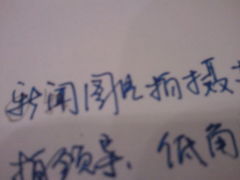 新闻图片拍摄
拍领导、低角